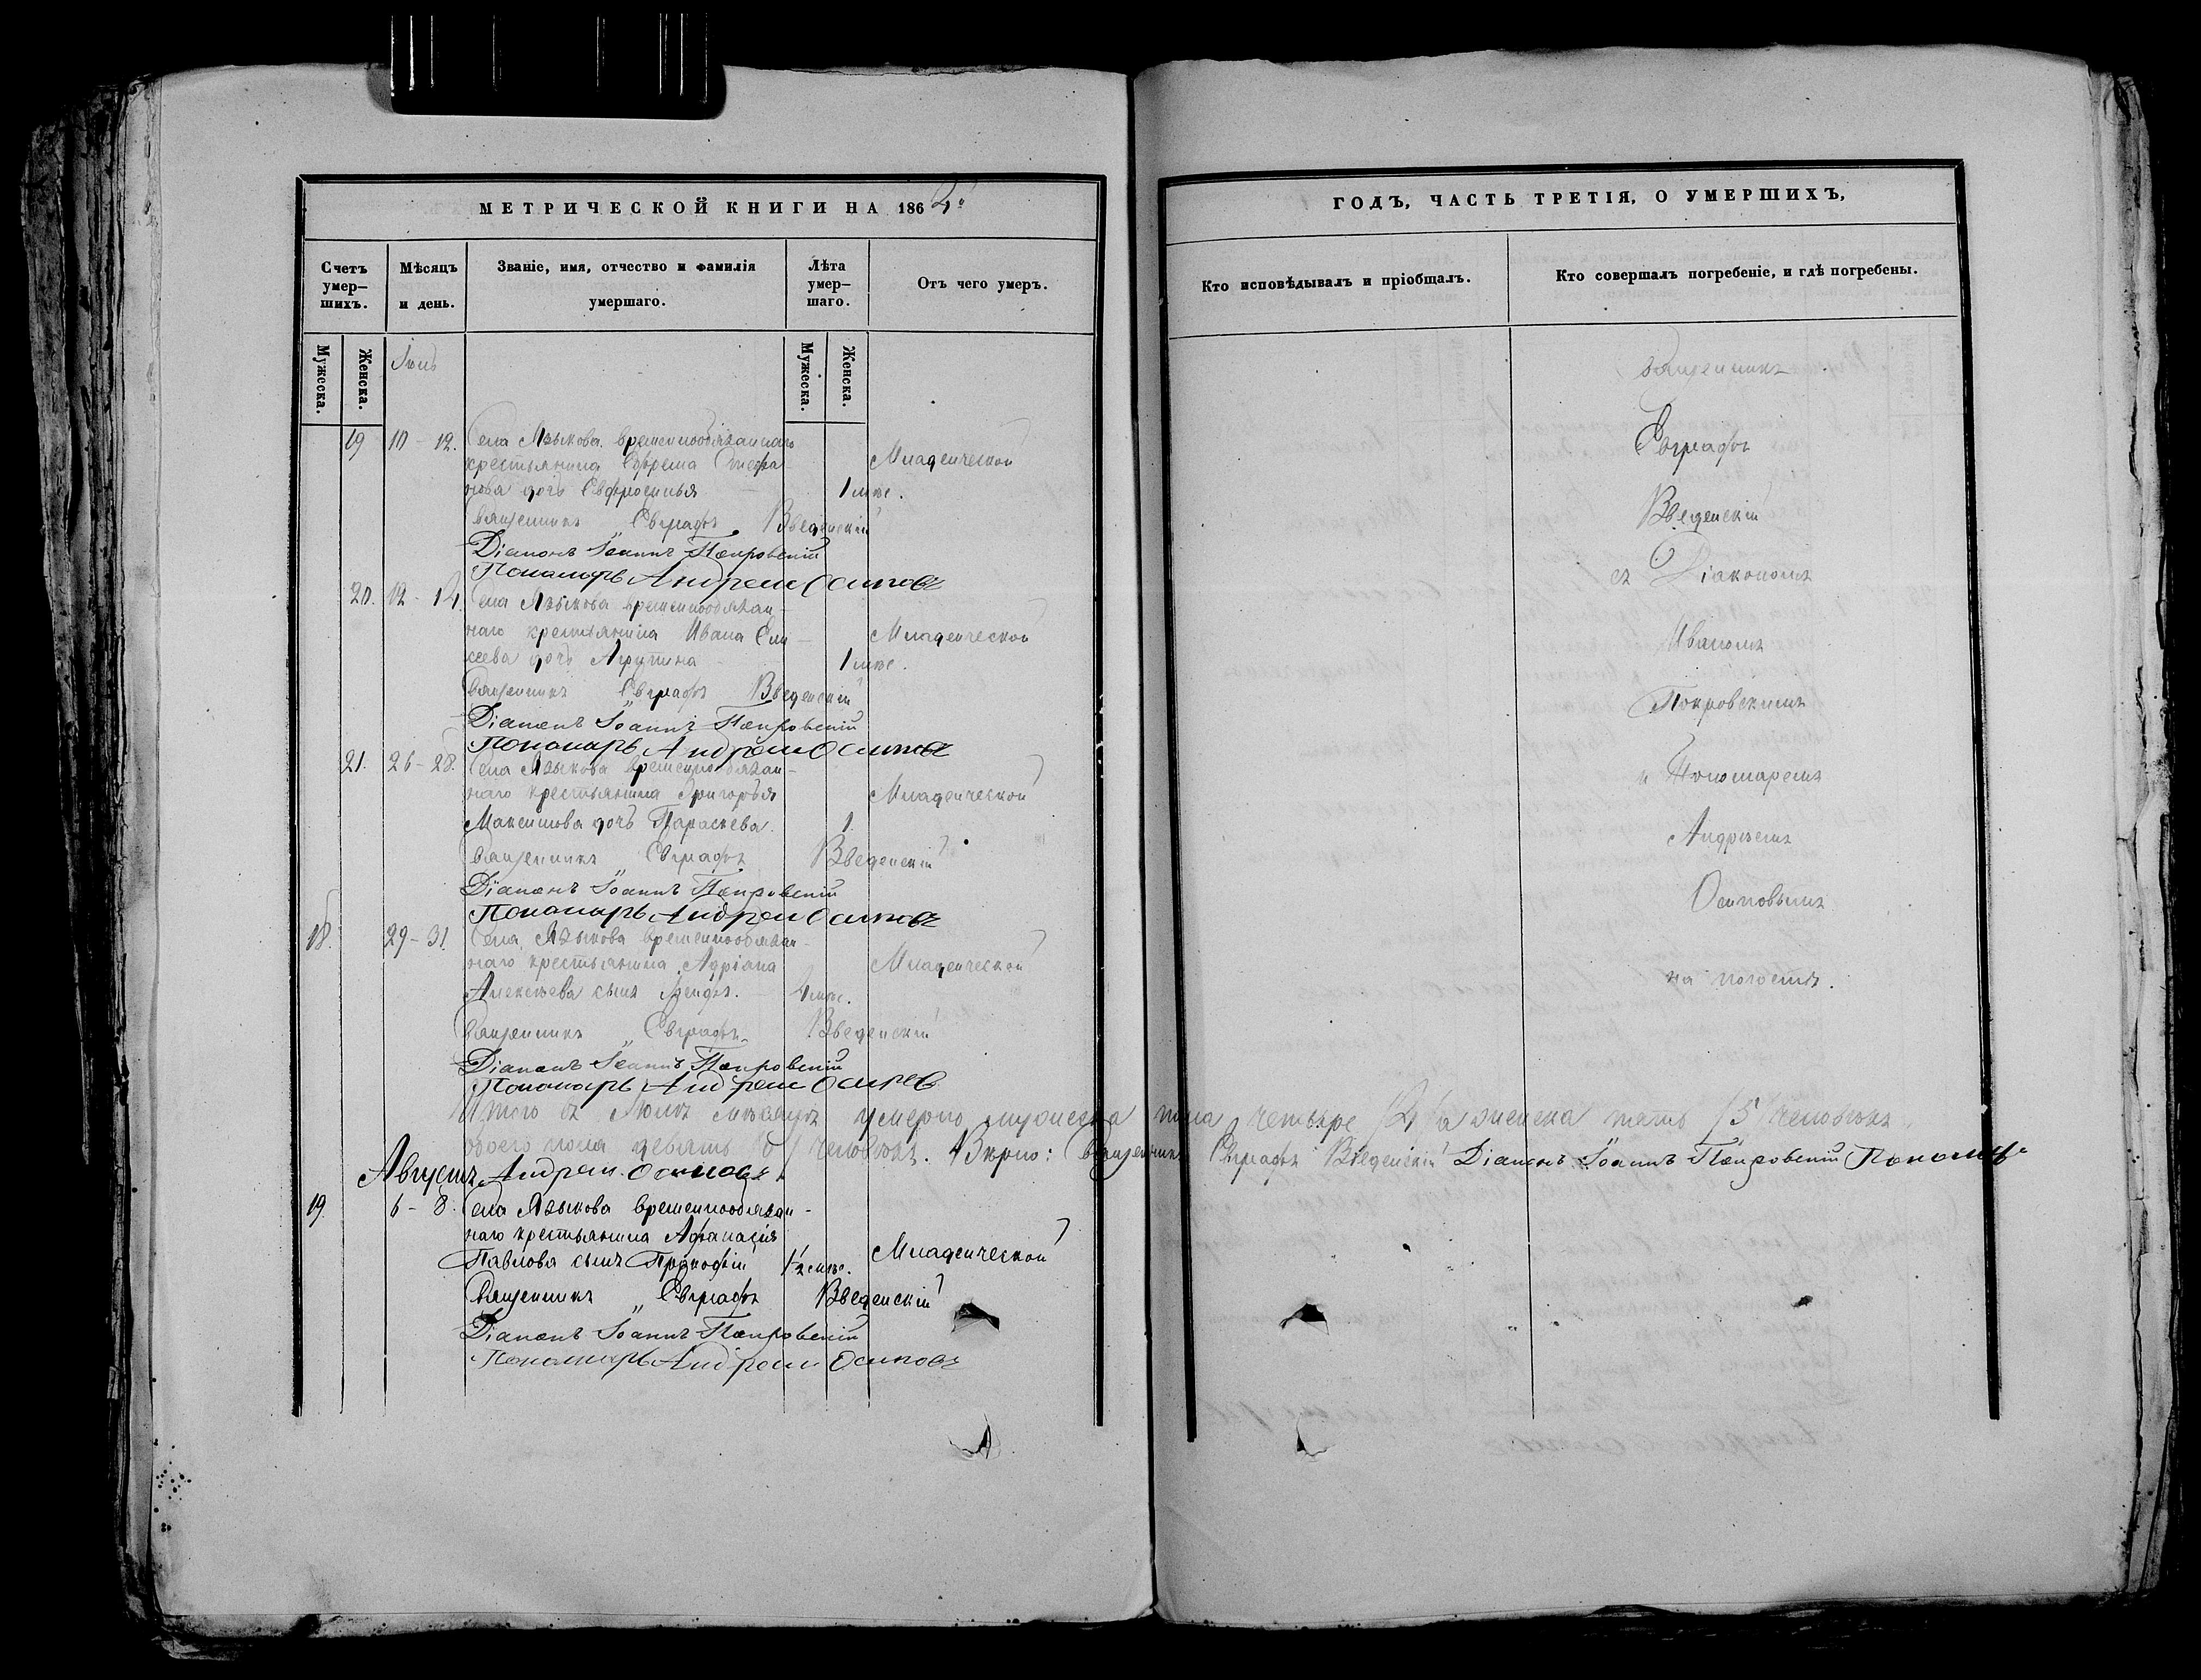 МЕТРИЧЕСКОЙ КНИГИ НА 1862
Счетъ умер-шихъ.
Мѣсяцъ и день.
Званіе, имя, отчество и фамилія умершаго.
Лѣта умер-шаго.
Отъ чего умеръ.
Мужеска.
Женска.
Мужеска.
Женска.
Іюль
19 10 - 12. Села Языкова временнообязаннаго
крестьянина Ефрема Стефа Младенческой
нова дочь Евфросинья 1 мѣс.
Священникъ Евграфъ Введенскій
Діаконъ Іоаннъ Покровскій
Пономарь Андрей Осиповъ
20. 12 - 14. Села Языкова временнообязан-
наго крестьянина Ивана Ели- Младенческой
сеева дочь Агрипина 1 мѣс.
Священникъ Евграфъ Введенскій
Діаконъ Іоаннъ Покровскій
Пономарь Андрей Осиповъ
21. 26 - 28. Села Языкова временнообязан-
наго крестьянина Григорья Младенческой
Максимова дочь Параскева. 1
Священникъ Евграфъ Введенскій
Діаконъ Іоаннъ Покровскій
Пономарь Андрей Осиповъ
18. 29 - 31. Села Языкова временнообязан-
наго крестьянина Адріана Младенческой
Алексѣева сынъ мѣс.
Священникъ Евграфъ Введенскій
Діаконъ Іоаннъ Покровскій
Пономарь Андрей Осиповъ
Итого въ Іюлѣ мѣсяцѣ умерло мужеска пола четыре /4/ а женска пять /5/ человѣкъ,
обоего пола девять человѣкъ. Вѣрно: Священникъ Евграфъ Введенскій Діаконъ Іоаннъ Покровскій Пономарь
Августъ Андрей Осиповъ
19. 6 - 8. Села Языкова временнообязан-
наго крестьянина Афанасія
Павлова сынъ Прокофій 1/2 мѣс. Младенческой
Священникъ Евграфъ Введенскій
Діаконъ Іоаннъ Покровскій
Пономарь Андрей Осиповъ
ГОДЪ, ЧАСТЬ ТРЕТІЯ, О УМЕРШИХЪ,
Кто исповѣдывалъ и пріобщалъ.
Кто совершалъ погребеніе, и гдѣ погребены.
Священникъ
Евграфъ
Введенскій
съ Діакономъ
Иваномъ
Покровскимъ
и Пономаремъ
Андреемъ
Осиповымъ
на погостѣ.